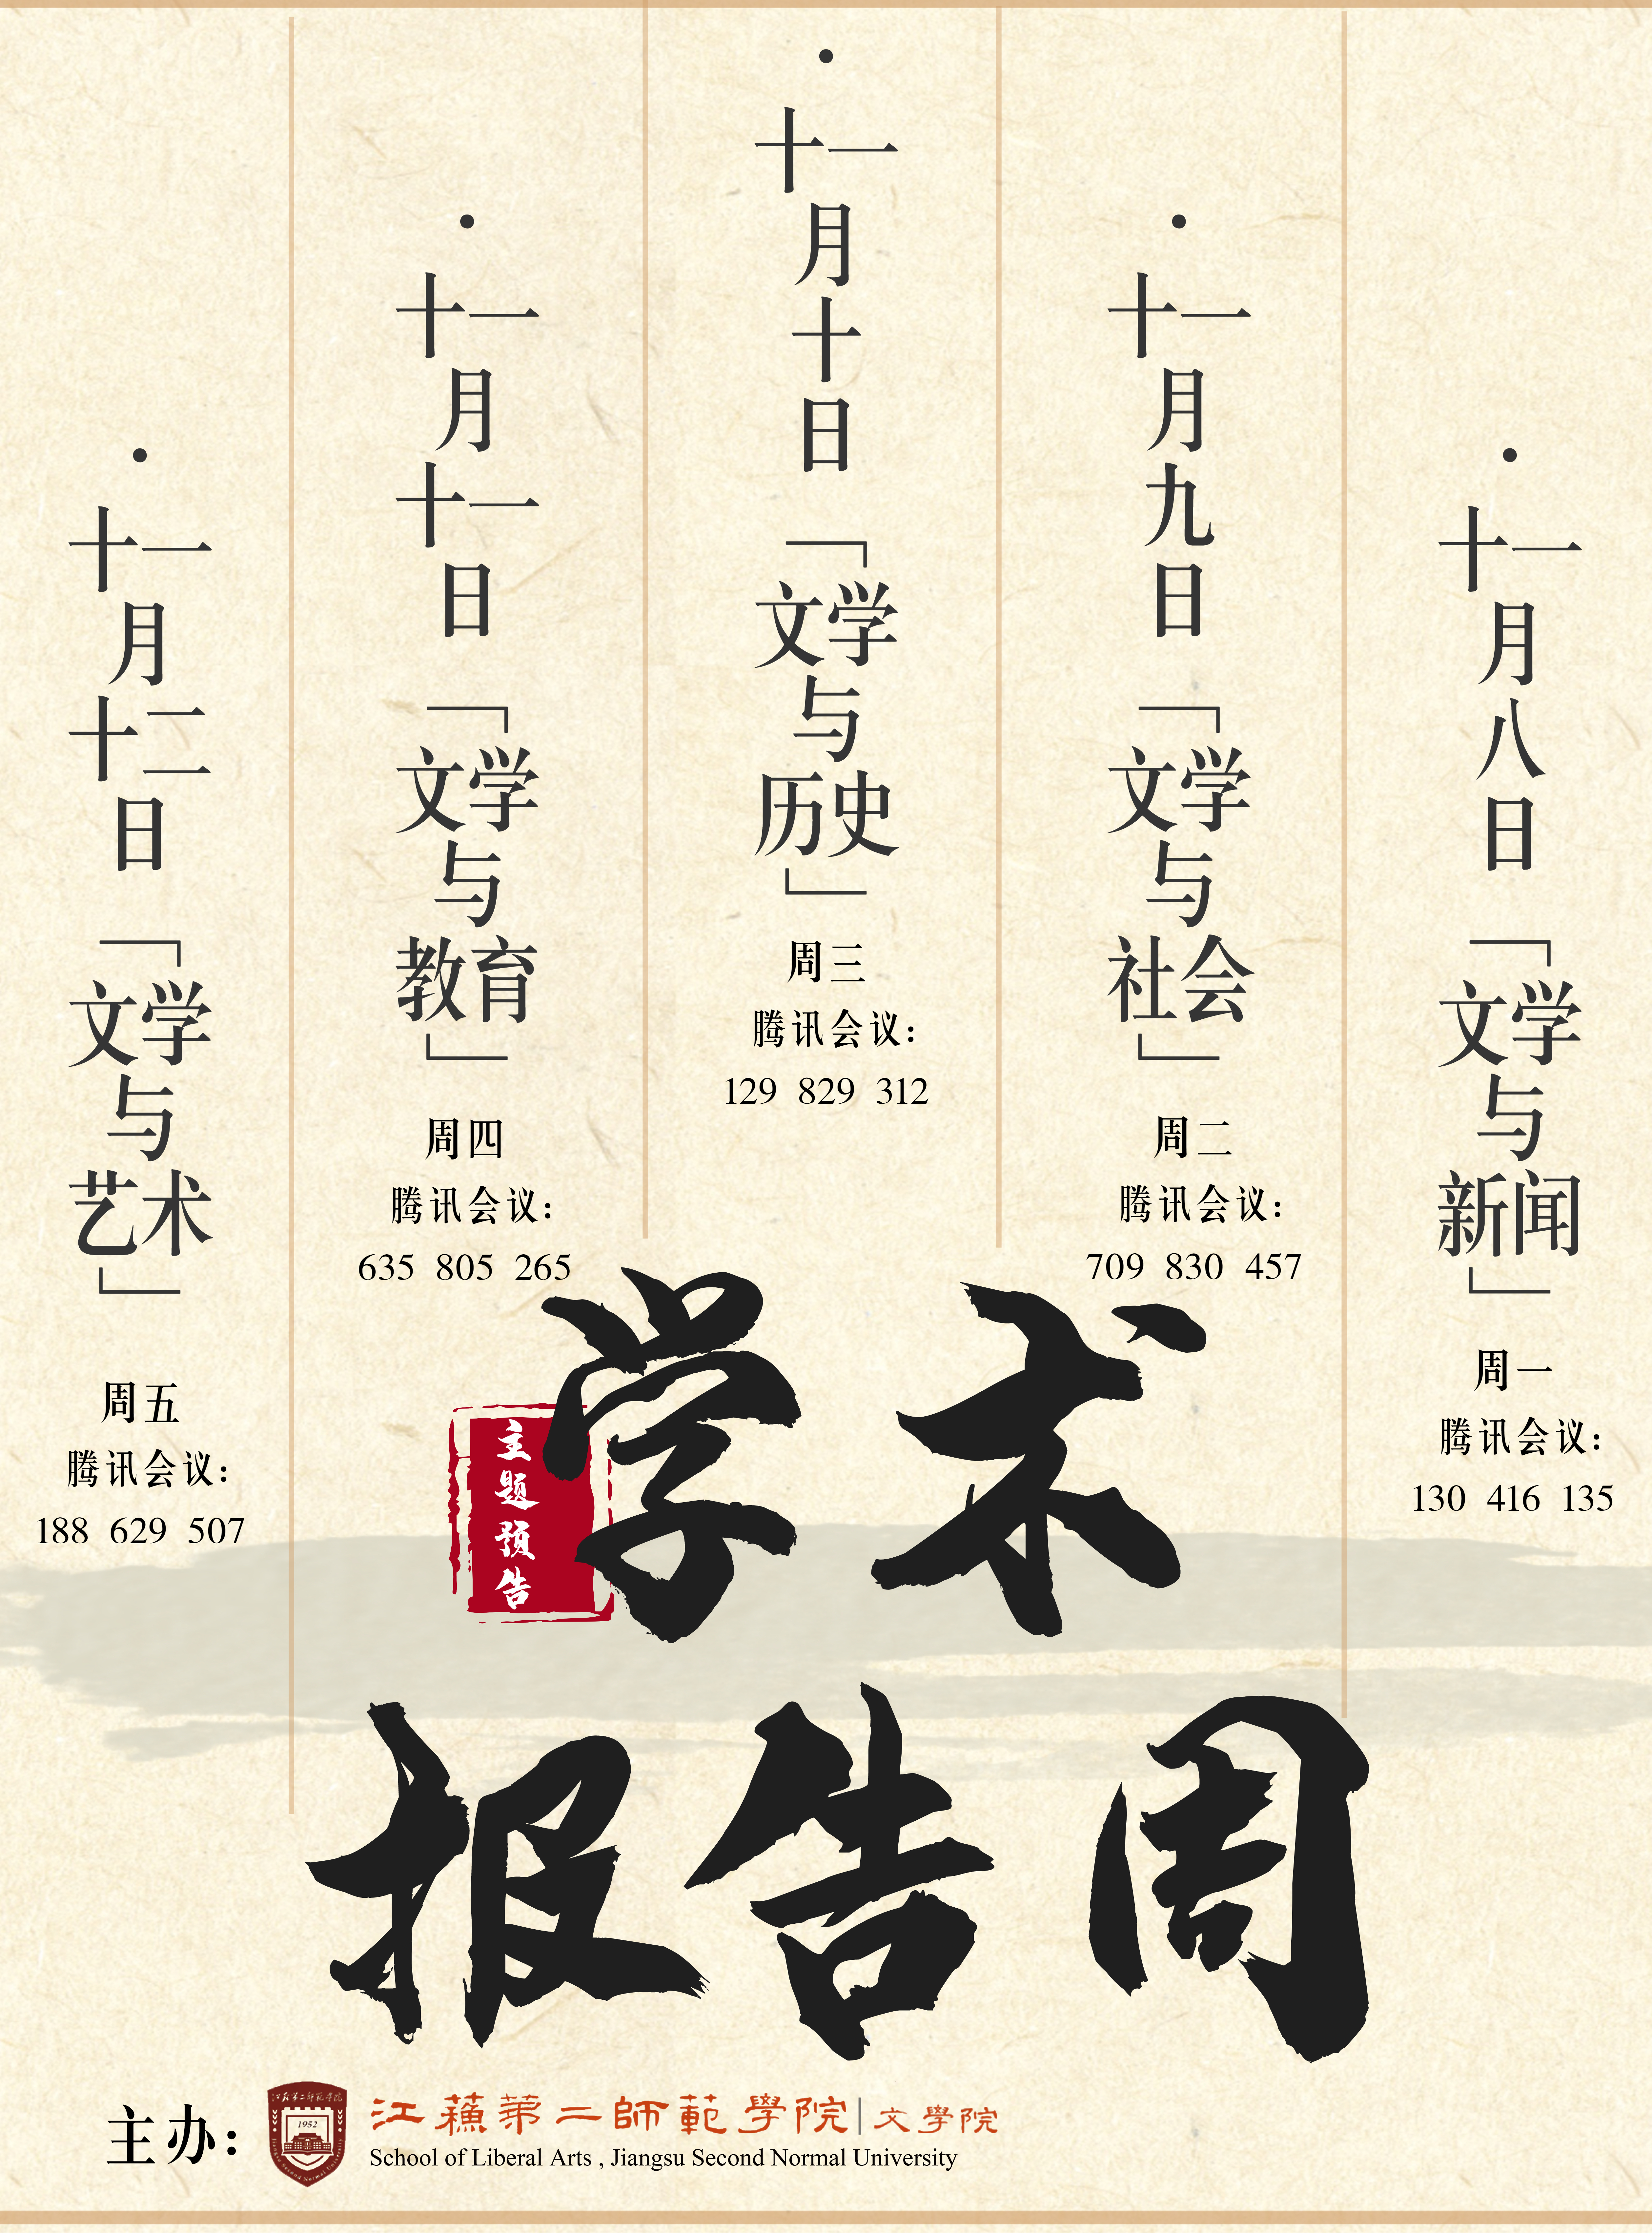 十一月八日
「文学与新闻」
周一
腾讯会议：
130 416 135
十一月九日
「文学与社会」
周二
腾讯会议：
709 830 457
十一月十日
「文学与历史」
周三
腾讯会议：
129 829 312
十一月十一日
「文学与教育」
周四
腾讯会议：
635 805 265
十一月十二日
「文学与艺术」
周五
腾讯会议：
188 629 507
学术
主题预告
报告周
主办：
1952
江蘇第二師範學院|文學院
School of Liberal Arts , Jiangsu Second Normal University